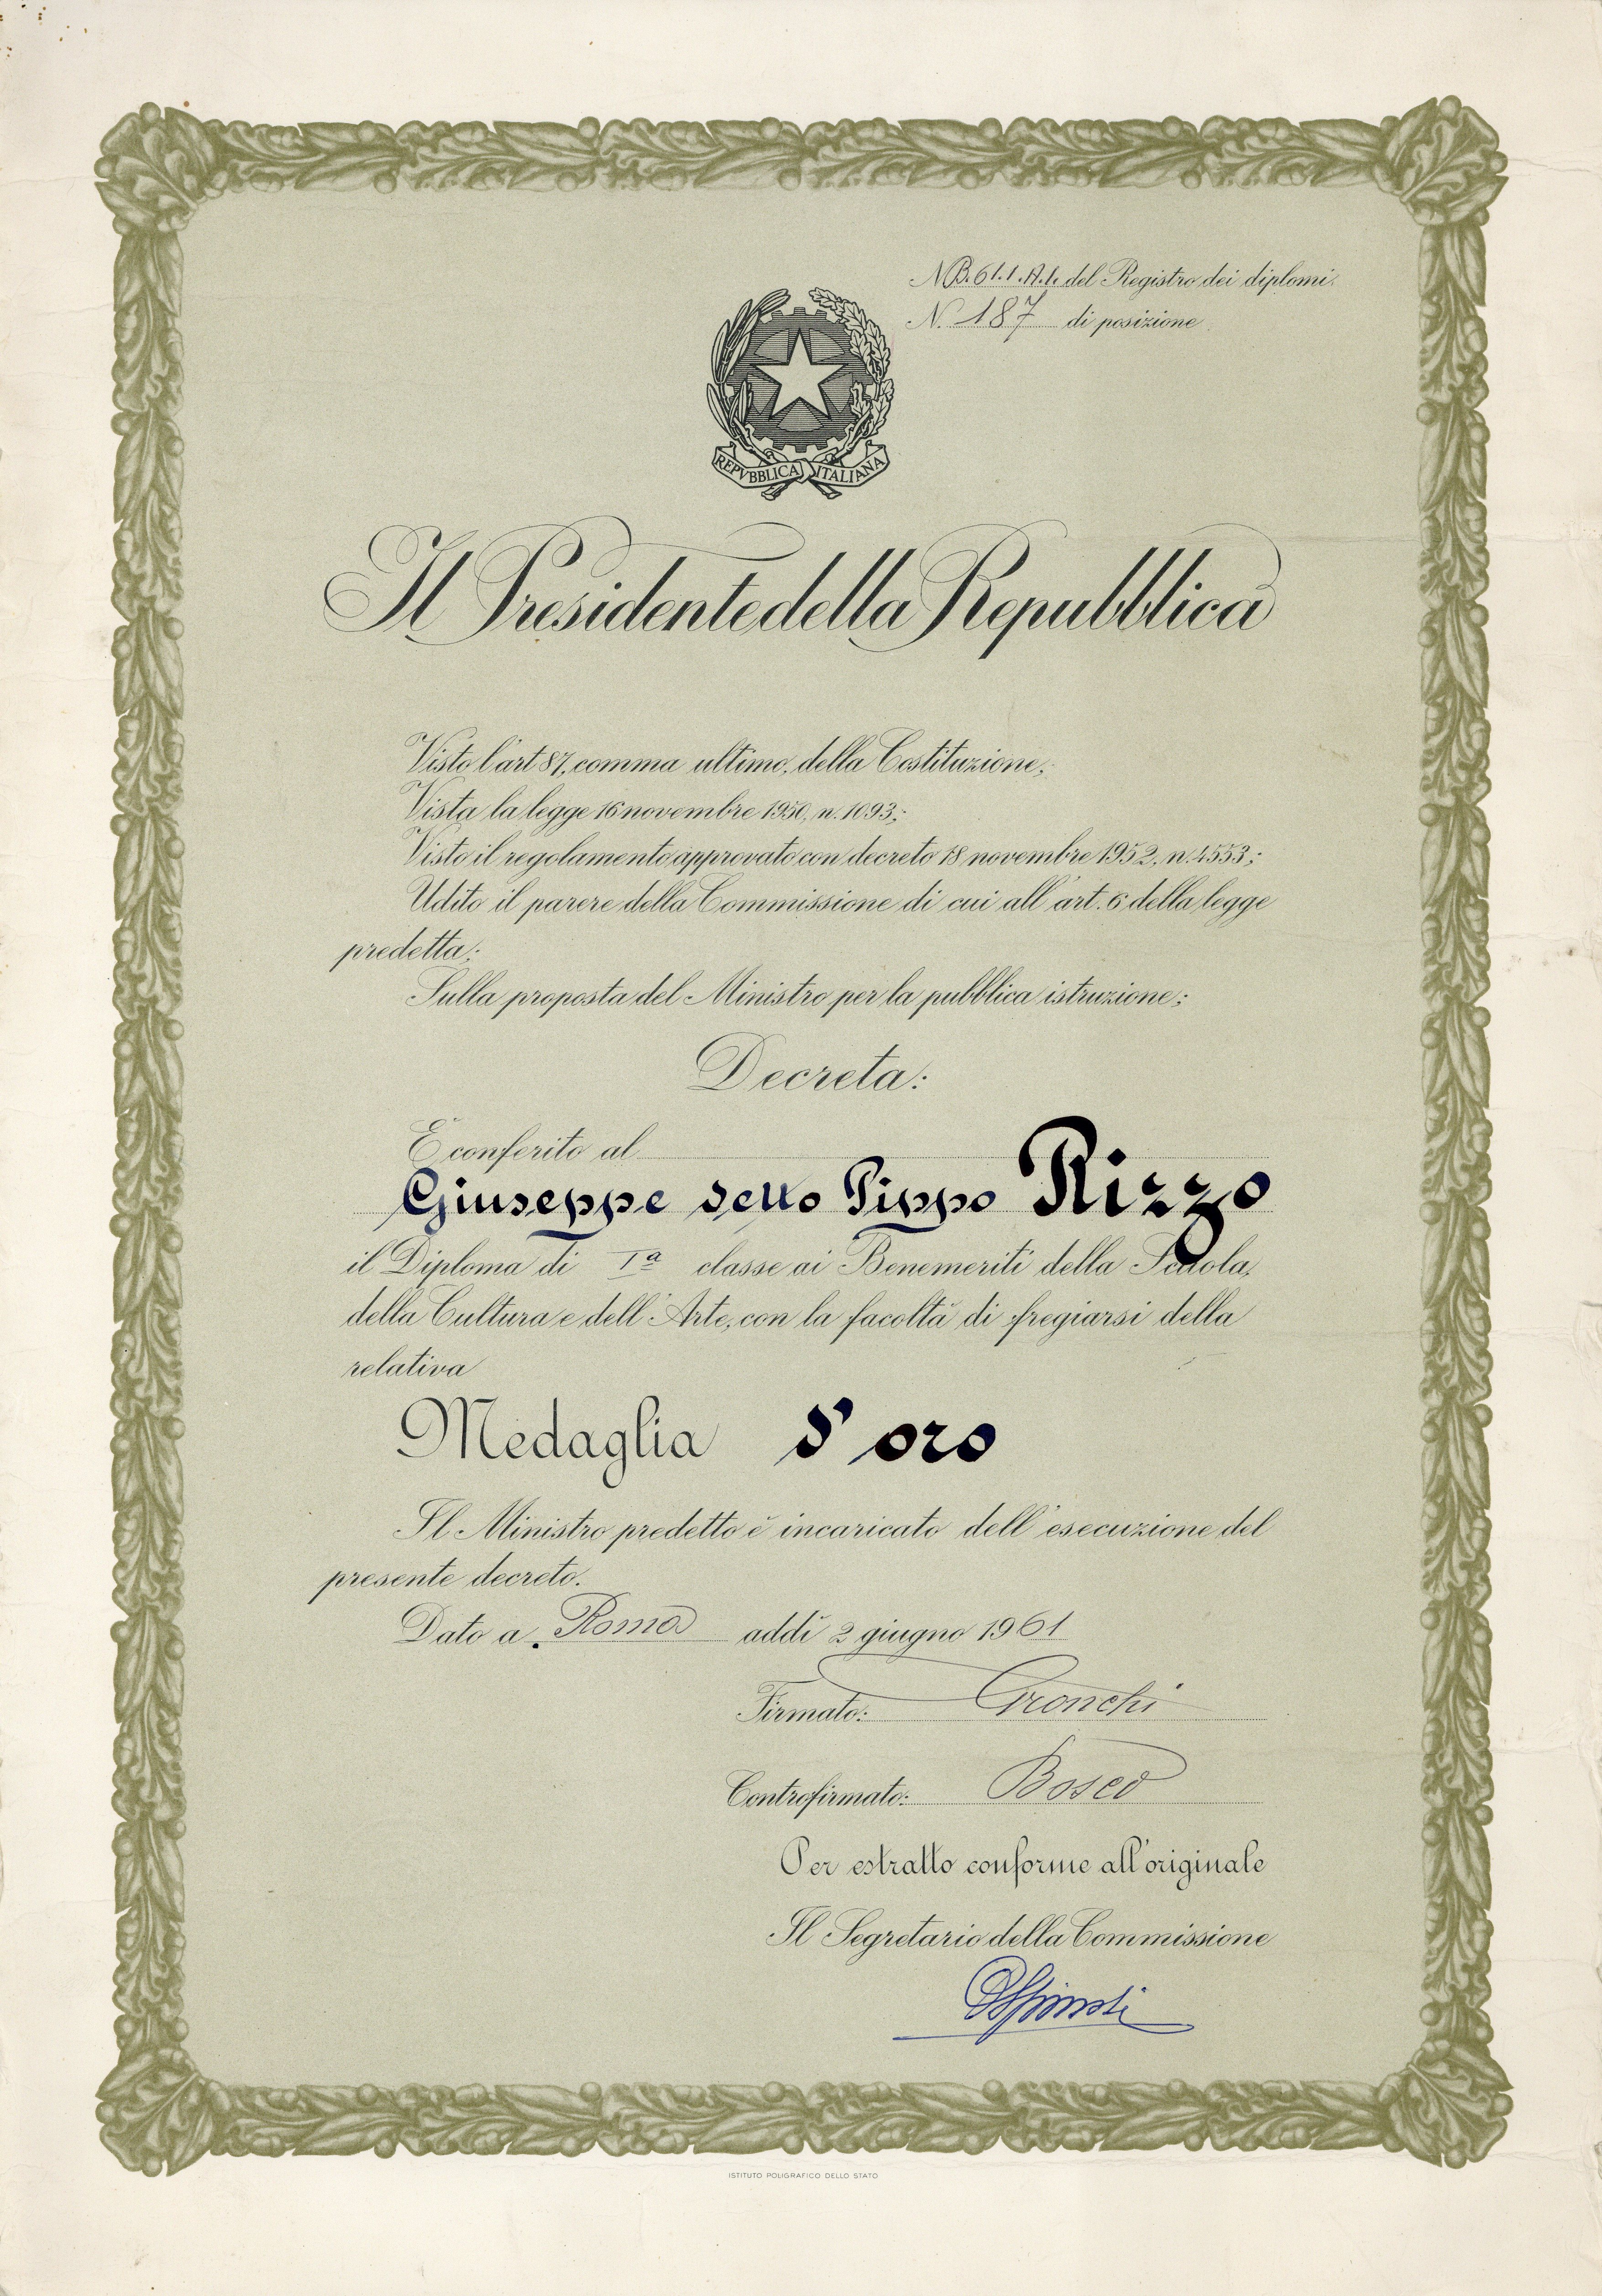 N. B. 61. 1. A. 1. del Registro dei diplomi.
N. 187 di posizione.
REPVBBLICA ITALIANA
Il Presidente della Repubblica
Visto l'art 87, comma ultimo, della Costituzione;
Vista la legge 16 novembre 1950, n. 1093;
Visto il regolamento approvato con decreto 18 novembre 1952, n. 4553;
Udito il parere della Commissione di cui all'art. 6 della legge
predetta;
Sulla proposta del Ministro per la pubblica istruzione;
Decreta:
È conferito al
Giuseppe detto Pippo Rizzo
il Diploma di Iª classe ai Benemeriti della Scuola,
della Cultura e dell'Arte, con la facoltà di fregiarsi della
relativa
Medaglia d'oro
Il Ministro predetto è incaricato dell'esecuzione del
presente decreto.
Dato a Roma addì 2 giugno 1961
Firmato: Gronchi
Controfirmato: Bosco
Per estratto conforme all'originale
Il Segretario della Commissione
ISTITUTO POLIGRAFICO DELLO STATO